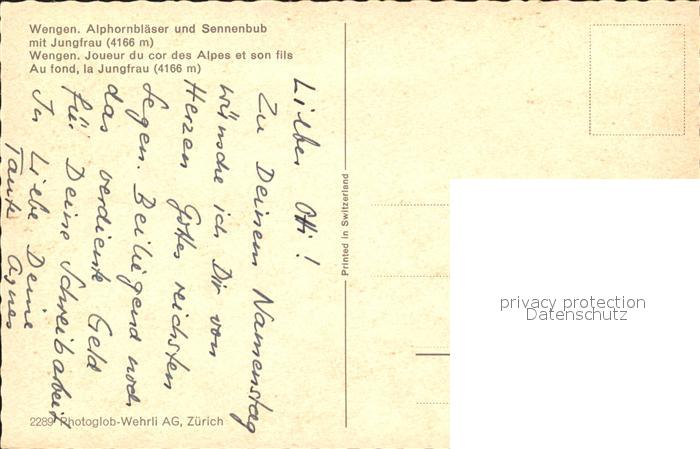 Wengen. Alphornbläser und Sennenbub
mit Jungfrau (4166 m)
Wengen. Joueur du cor des Alpes et son fils
Au fond, la Jungfrau (4166 m)
Lieber Otti!
Zu Deinem Namenstag
wünsche ich Dir von
Herzen Gottes reichsten
Segen. Beiliegend noch
das verdiente Geld
für Deine Schreibarbeit
In Liebe Deine
Tante Agnes
2289 Photoglob-Wehrli AG, Zürich
Printed in Switzerland
privacy protection
Datenschutz